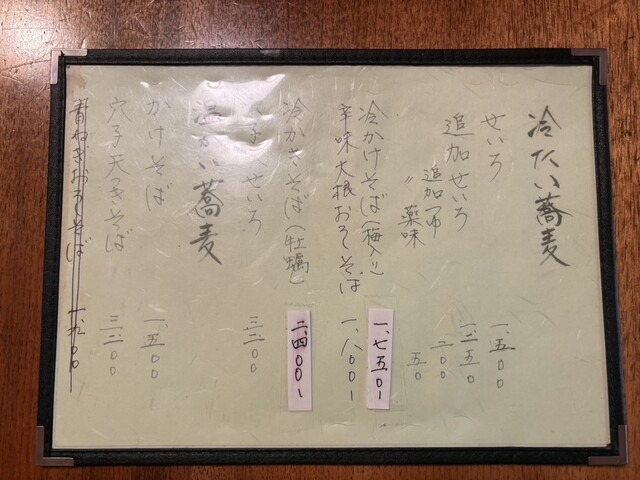 冷たい蕎麦
せいろ 一、五〇〇
追加せいろ 一、二五〇
追加つゆ 二〇〇
〃 薬味 五〇
冷かけそば(梅入り) 一、七五〇-
辛味大根おろしそば 一、八〇〇-
冷かきそば(牡蠣) 二、四〇〇-
せいろ 三、二〇〇
温かい蕎麦
かけそば 一、五〇〇
穴子天つきそば 三、二〇〇
青ねぎおろしそば 一、九〇〇